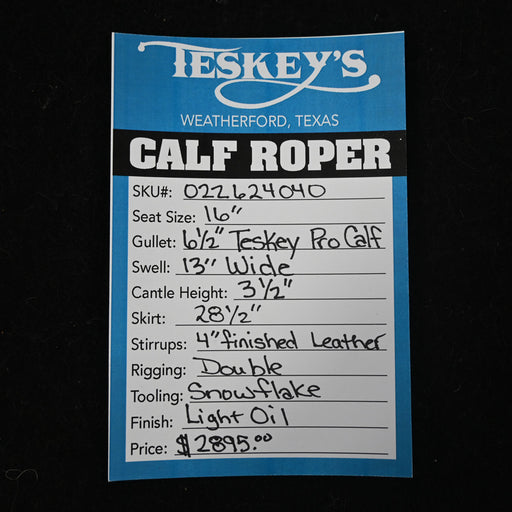 TESKEY'S
WEATHERFORD, TEXAS
CALF ROPER
SKU#: 022624040
Seat Size: 16"
Gullet: 6½" Teskey Pro Calf
Swell: 13" Wide
Cantle Height: 3½"
Skirt: 28½"
Stirrups: 4" finished Leather
Rigging: Double
Tooling: Snowflake
Finish: Light Oil
Price: $2895.00